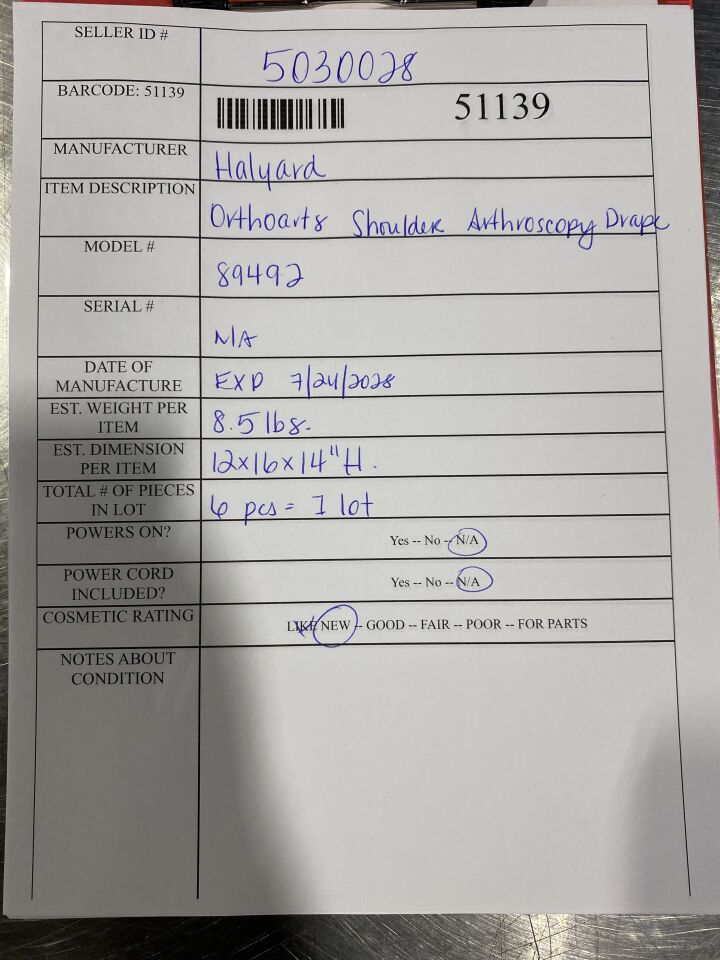 SELLER ID # 5030028
BARCODE: 51139 51139
MANUFACTURER Halyard
ITEM DESCRIPTION Orthoarts Shoulder Arthroscopy Drape
MODEL # 89492
SERIAL # N/A
DATE OF
MANUFACTURE EXP 7/24/2028
EST. WEIGHT PER
ITEM 8.5 lbs.
EST. DIMENSION
PER ITEM 12x16x14"H.
TOTAL # OF PIECES
IN LOT 6 pcs = 1 lot
POWERS ON? Yes -- No -- N/A
POWER CORD
INCLUDED? Yes -- No -- N/A
COSMETIC RATING LIKE NEW -- GOOD -- FAIR -- POOR -- FOR PARTS
NOTES ABOUT
CONDITION